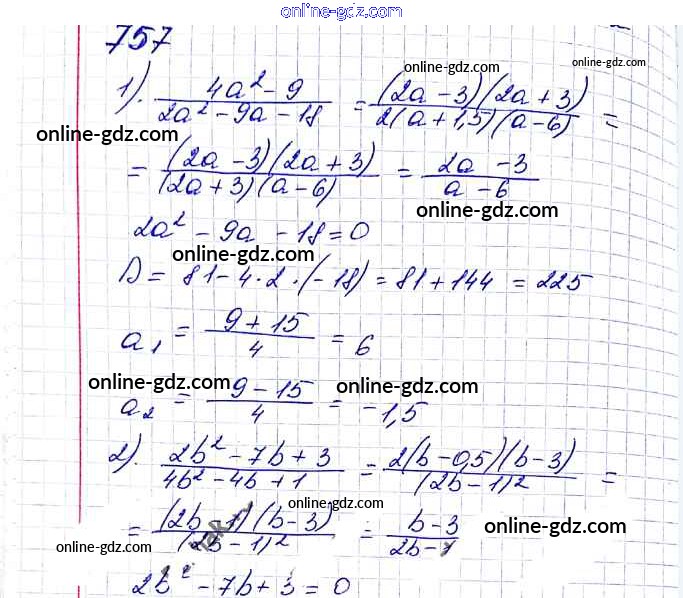 online-gdz.com
757
1). (4a² - 9)/(2a² - 9a - 18) = ((2a - 3)(2a + 3))/(2(a + 1,5)(a - 6)) =
online-gdz.com
online-gdz.com
online-gdz.com
= ((2a - 3)(2a + 3))/((2a + 3)(a - 6)) = (2a - 3)/(a - 6)
online-gdz.com
2a² - 9a - 18 = 0
online-gdz.com
D = 81 - 4·2·(-18) = 81 + 144 = 225
a₁ = (9 + 15)/4 = 6
online-gdz.com online-gdz.com
a₂ = (9 - 15)/4 = -1,5
2). (2b² - 7b + 3)/(4b² - 4b + 1) = (2(b - 0,5)(b - 3))/((2b - 1)²) =
online-gdz.com
= ((2b - 1)(b - 3))/((2b - 1)²) = (b - 3)/(2b - 1)
online-gdz.com
online-gdz.com
2b² - 7b + 3 = 0